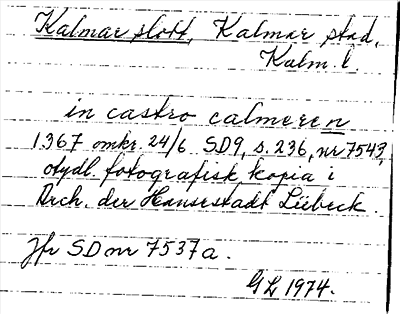 Kalmar slott, Kalmar stad,
Kalm. l
in castro calmeren
1367 omkr. 24/6 SD9, s. 236, nr 7543,
otydl. fotografisk kopia i
Arch. der Hansestadt Lübeck.
Jfr SD nr 7537a.
GL 1974.